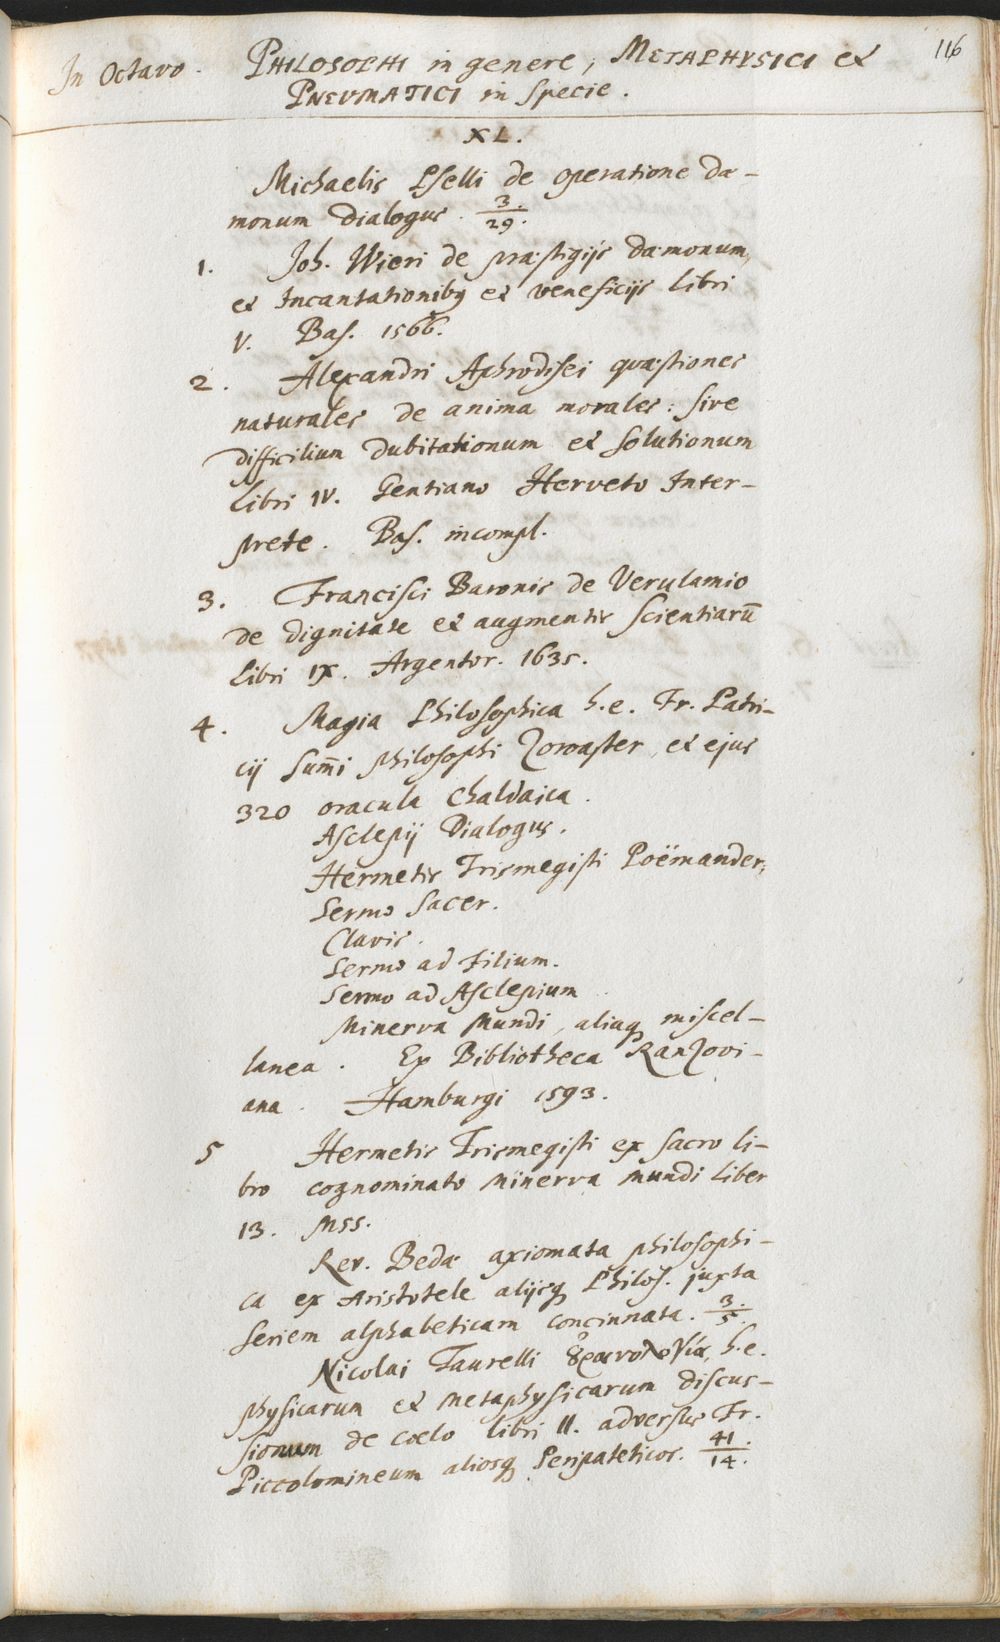 116
In Octavo. PHILOSOPHI in genere, METAPHYSICI et
PNEVMATICI in Specie.
XL.
Michaelis Pselli de operatione dæ-
monum Dialogus. 3./29.
1. Joh. Wieri de præstigijs dæmonum,
et Incantationibꝰ et veneficijs libri
V. Bas. 1566.
2. Alexandri Aphrodisei quæstiones
naturales de anima morales: sive
difficilium dubitationum et solutionum
libri IV. Gentiano Herveto Inter-
prete. Bas. incompl.
3. Francisci Baronis de Verulamio
de dignitate et augmentis scientiarū
libri IX. Argentor. 1635.
4. Magia Philosophica h.e. Fr. Patri-
cij sum̄i philosophi Zoroaster, et ejus
320 oracula Chaldaica.
Asclepij Dialogus.
Hermetis Trismegisti Poëmander,
Sermo sacer.
Clavis.
Sermo ad Filium.
Sermo ad Asclepium
Minerva Mundi, aliaqꝫ miscel-
lanea. Ex Bibliotheca Ranzovi-
ana. Hamburgi 1593.
5 Hermetis Trismegisti ex sacro li-
bro cognominato Minerva mundi liber
13. Mss.
Rev. Bedæ axiomata philosophi-
ca ex Aristotele alijsqꝫ Philos. juxta
seriem alphabeticam concinnata. 3./5.
Nicolai Taurelli Ȣρανολογία, h.e.
physicarum et metaphysicarum discus-
sionum de cœlo libri II. adversus Fr.
Piccolomineum aliosqꝫ Peripateticos. 41./14.